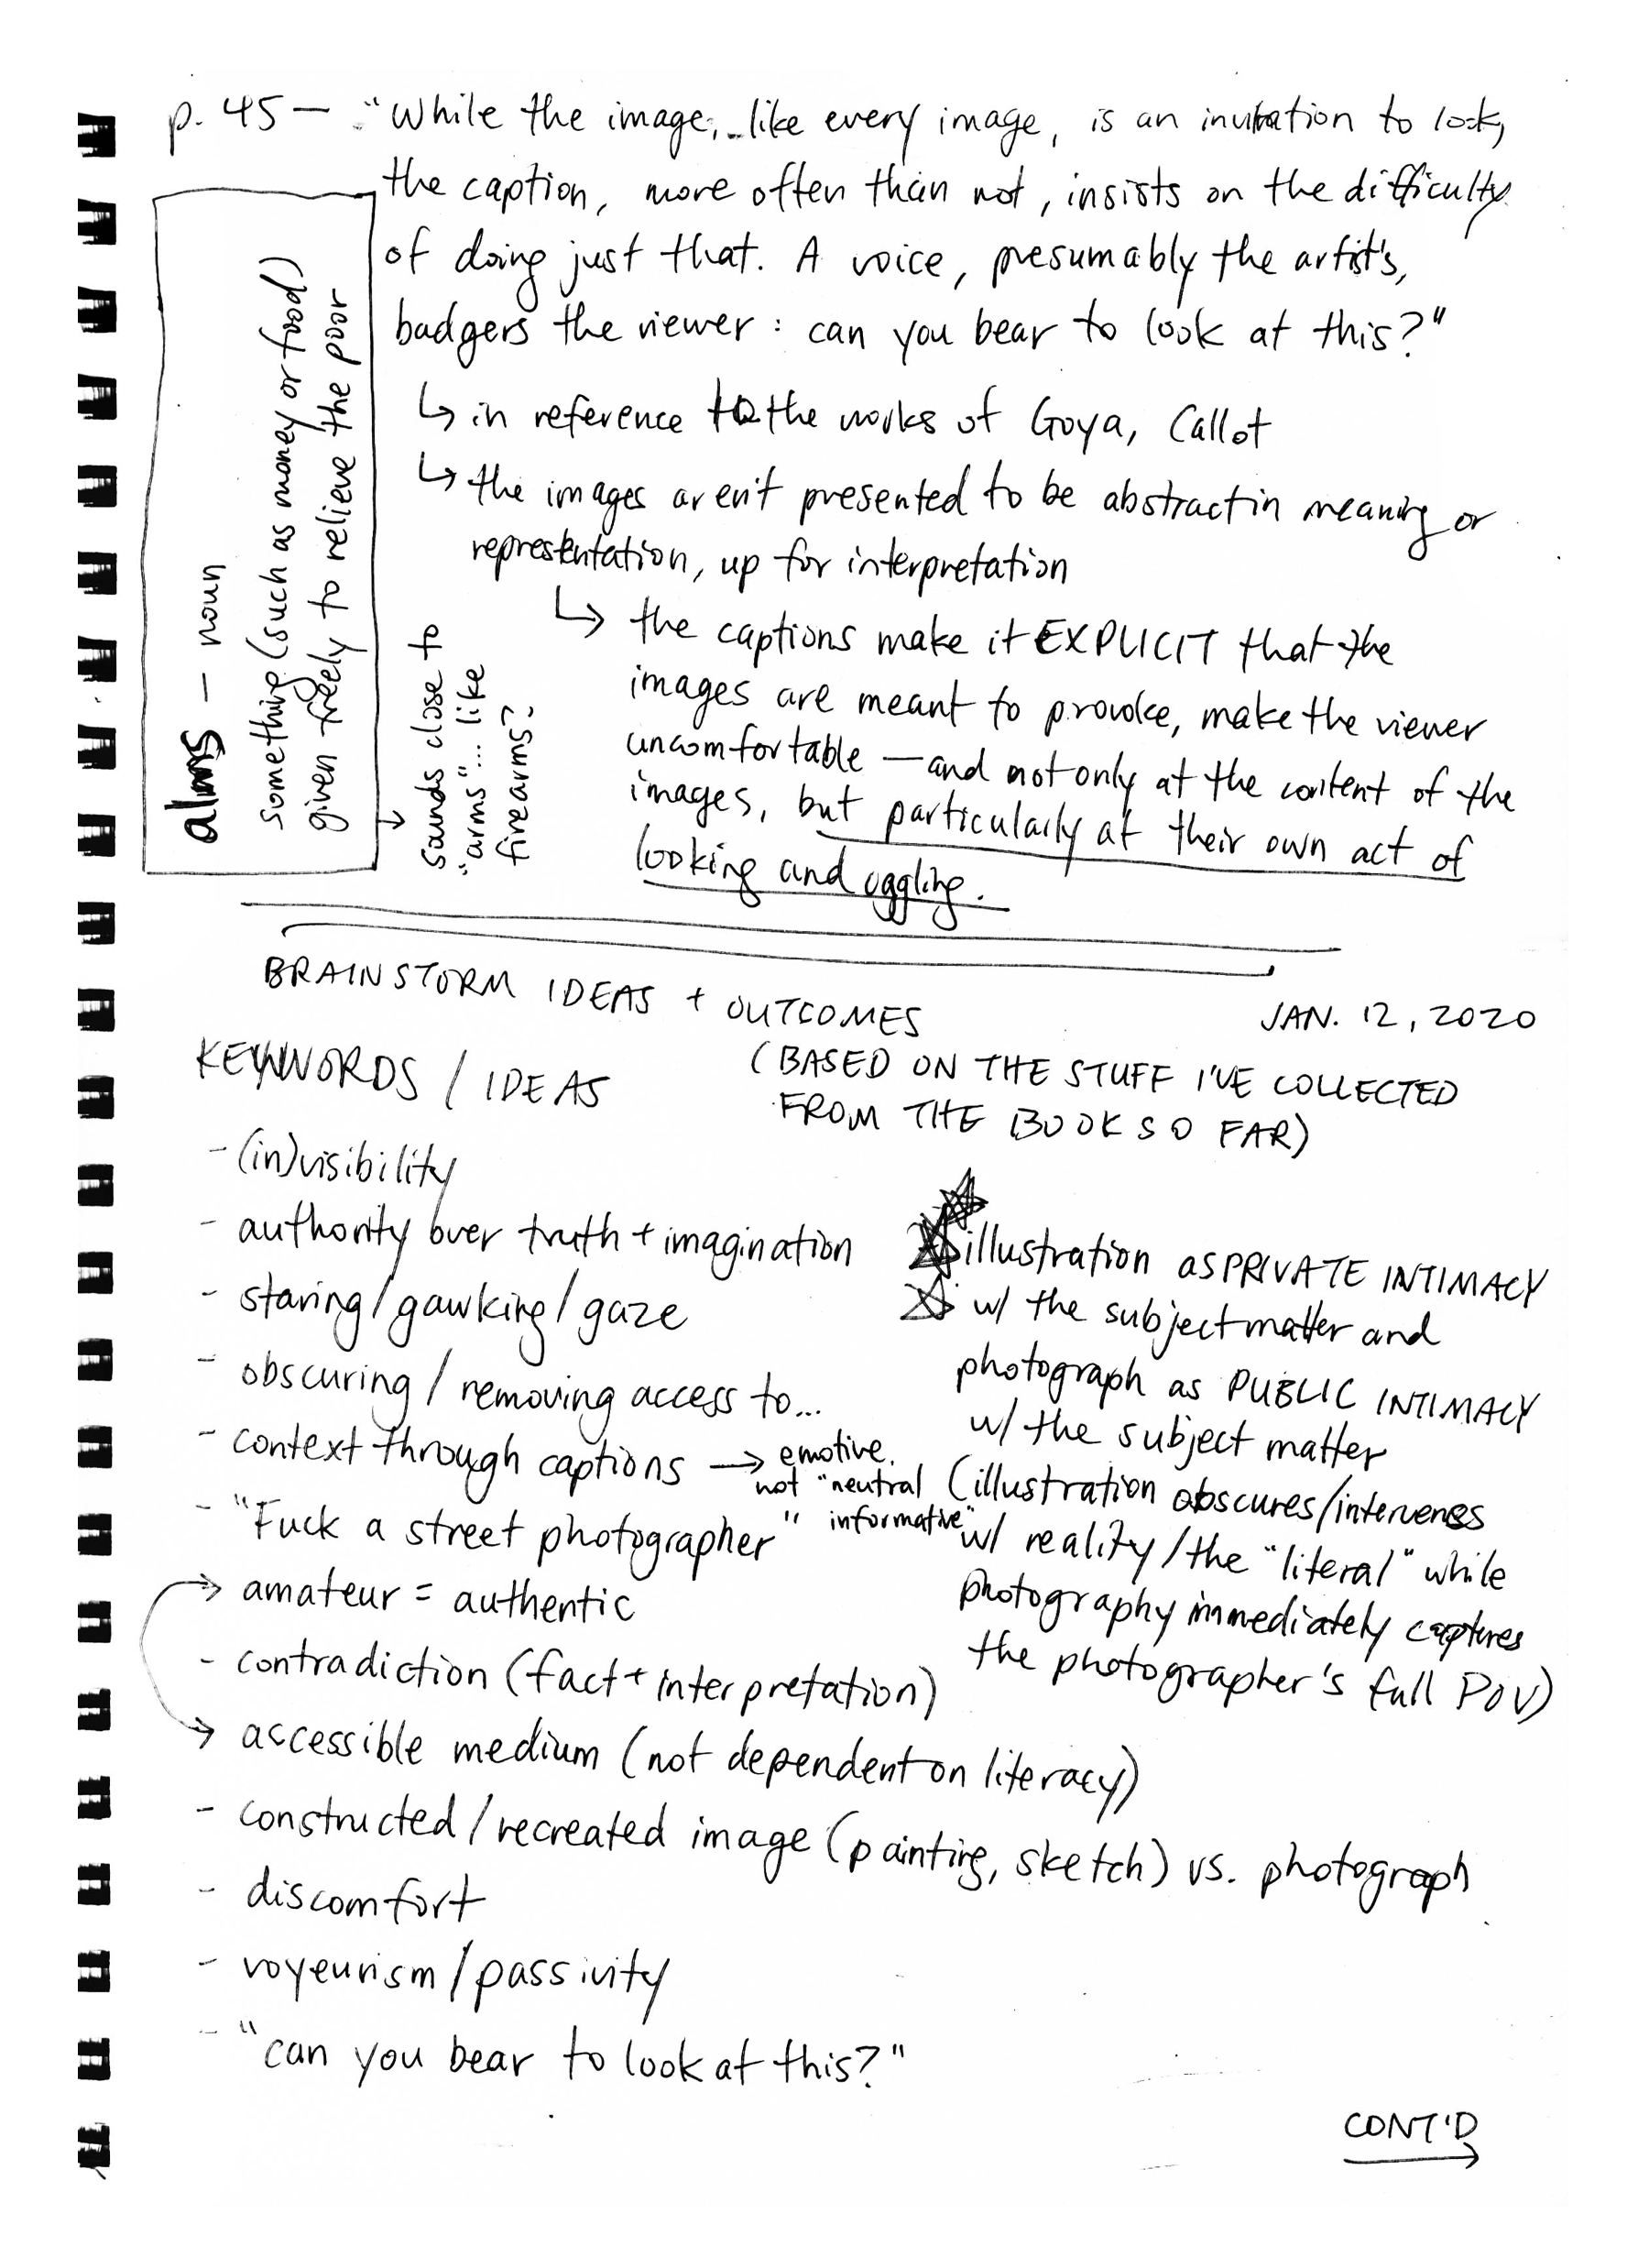 p. 45 — "While the image, like every image, is an invitation to look,
the caption, more often than not, insists on the difficulty
of doing just that. A voice, presumably the artist's,
badgers the viewer: can you bear to look at this?"
↳ in reference to the works of Goya, Callot
↳ the images aren't presented to be abstract in meaning or
representation, up for interpretation
↳ the captions make it EXPLICIT that the
images are meant to provoke, make the viewer
uncomfortable — and not only at the content of the
images, but particularly at their own act of
looking and oggling.
alms — noun
something (such as money or food)
given freely to relieve the poor
→ sounds close to
"arms"... like
firearms?
BRAINSTORM IDEAS + OUTCOMES
JAN. 12, 2020
(BASED ON THE STUFF I'VE COLLECTED
FROM THE BOOK SO FAR)
KEYWORDS / IDEAS
- (in)visibility
- authority over truth + imagination
- staring/gawking/gaze
- obscuring / removing access to...
- context through captions → emotive,
not "neutral
informative"
- "Fuck a street photographer"
→ amateur = authentic
- contradiction (fact + interpretation)
→ accessible medium (not dependent on literacy)
- constructed/recreated image (painting, sketch) vs. photograph
- discomfort
- voyeurism/passivity
- "can you bear to look at this?"
illustration as PRIVATE INTIMACY
w/ the subject matter and
photograph as PUBLIC INTIMACY
w/ the subject matter
(illustration obscures/intervenes
w/ reality/the "literal" while
photography immediately captures
the photographer's full POV)
CONT'D